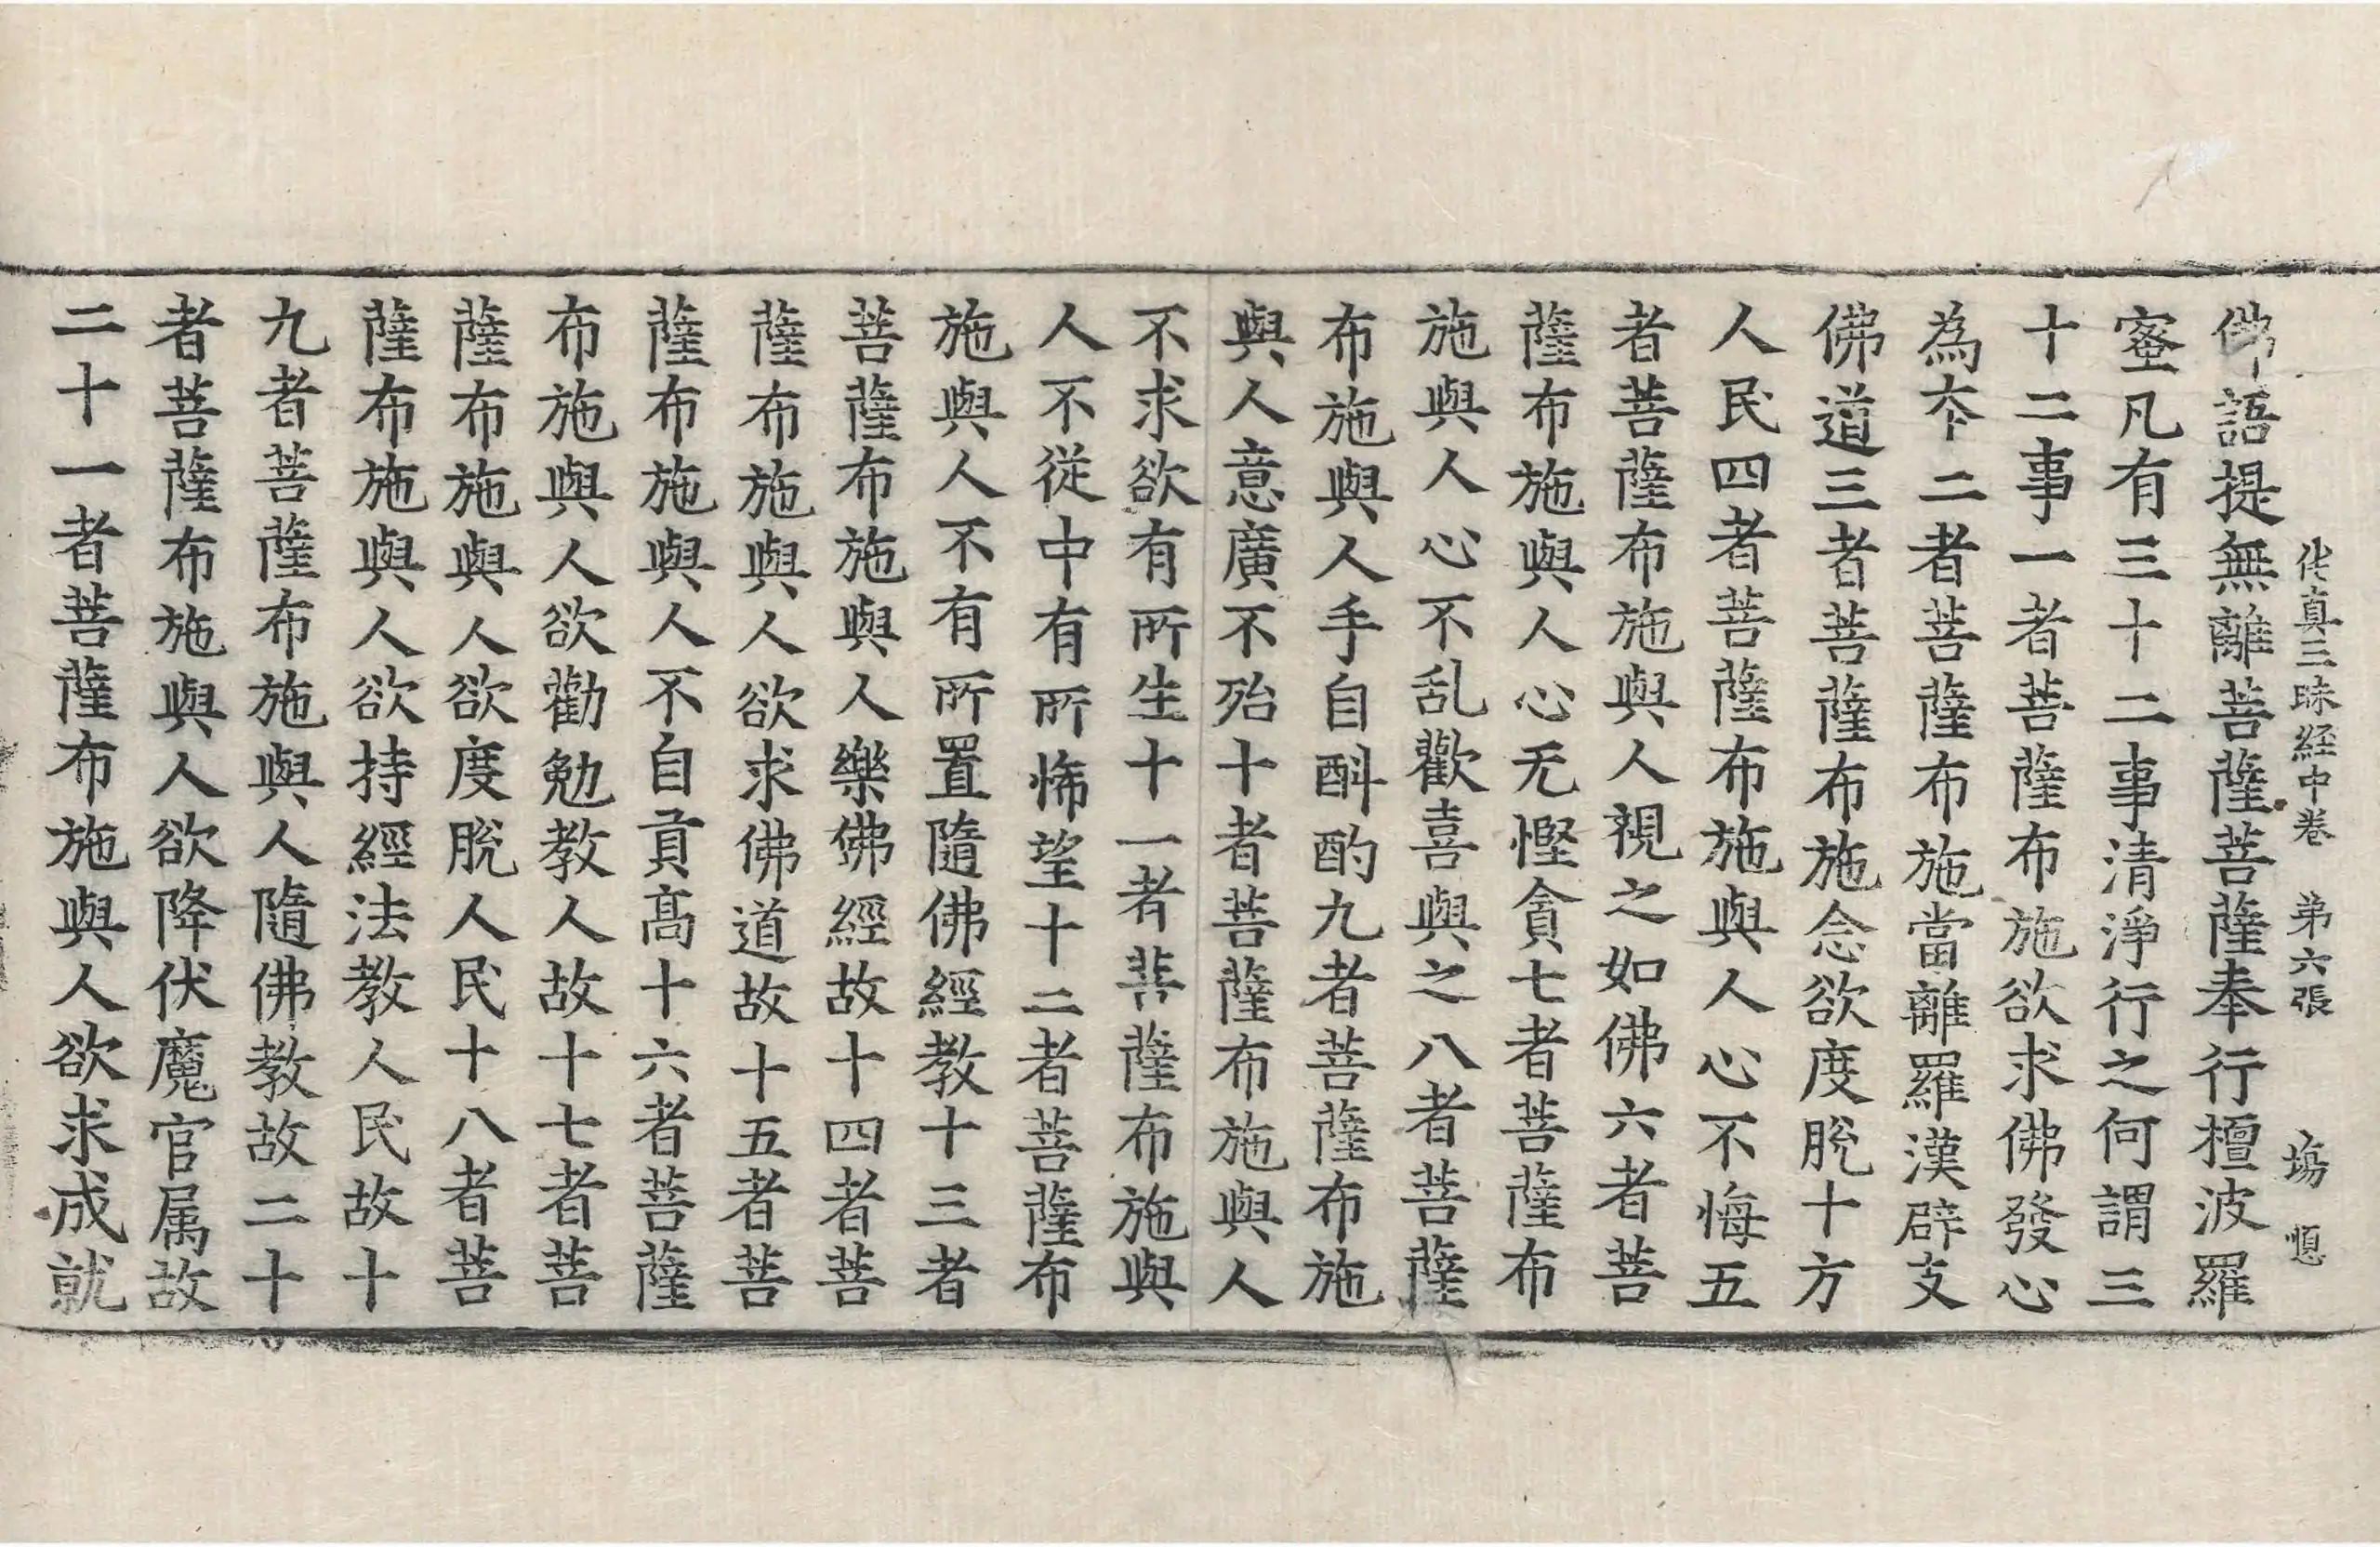 佛語提無離菩薩菩薩奉行檀波羅
伅真三昧經中卷 苐六張 塲 㥧
蜜凡有三十二事清淨行之何謂三
十二事一者菩薩布施欲求佛發心
為夲二者菩薩布施當離羅漢辟支
佛道三者菩薩布施念欲度脫十方
人民四者菩薩布施與人心不悔五
者菩薩布施與人視之如佛六者菩
薩布施與人心无慳貪七者菩薩布
施與人心不乱歡喜與之八者菩薩
布施與人手自斟酌九者菩薩布施
與人意廣不殆十者菩薩布施與人
不求欲有所生十一者菩薩布施與
人不從中有所悕望十二者菩薩布
施與人不有所置隨佛經教十三者
菩薩布施與人樂佛經故十四者菩
薩布施與人欲求佛道故十五者菩
薩布施與人不自貢高十六者菩薩
布施與人欲勸勉教人故十七者菩
薩布施與人欲度脫人民十八者菩
薩布施與人欲持經法教人民故十
九者菩薩布施與人隨佛教故二十
者菩薩布施與人欲降伏魔官属故
二十一者菩薩布施與人欲求成就